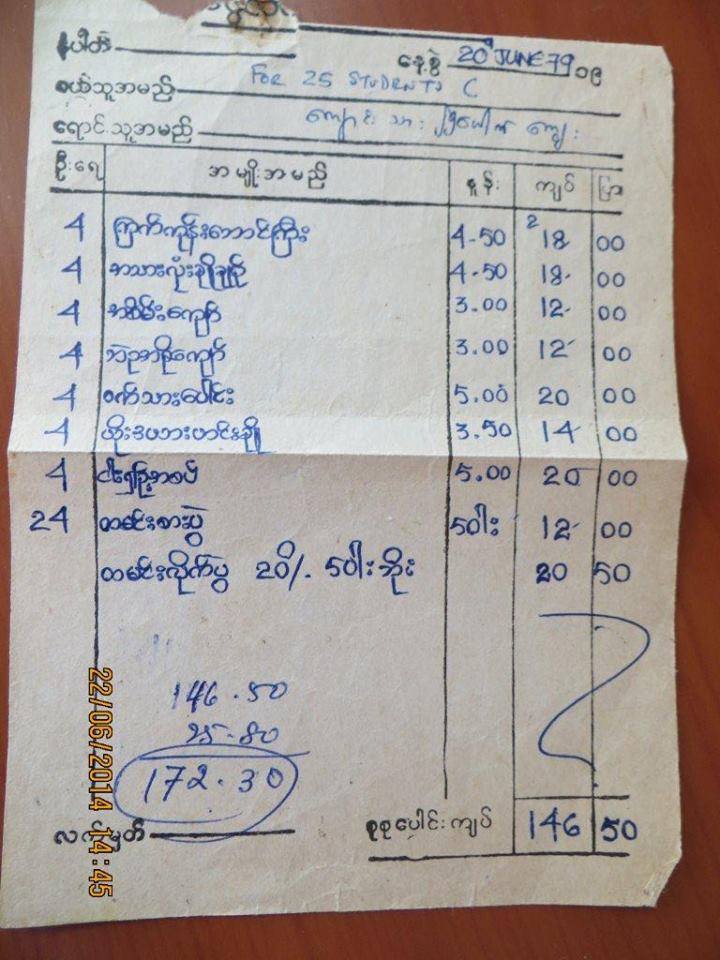 နံပါတ်
နေ့စွဲ 20th JUNE 79 ၁၉
ဝယ်သူအမည် FOR 25 STUDENTS C
ရောင်းသူအမည် ကျောင်းသား ၂၅ယောက် ကျွေး
ဦးရေ အမျိုးအမည် နှုန်း ကျပ် ပြား
4 ကြက်ကုန်းဘောင်ကြီး 4.50 18 00
4 အသားလုံးချိုချဉ် 4.50 18 00
4 အစိမ်းကျော် 3.00 12 00
4 ဘဲဥအစိုကျော် 3.00 12 00
4 ဝက်သားပေါင်း 5.00 20 00
4 3.50 14 00
4 5.00 20 00
24 ထမင်းစားပွဲ 50ါး 12 00
ထမင်းလိုက်ပွဲ 20 50
146.50
25.80
172.30
လက်မှတ် စုစုပေါင်းကျပ် 146 50
22/06/2014 14:45